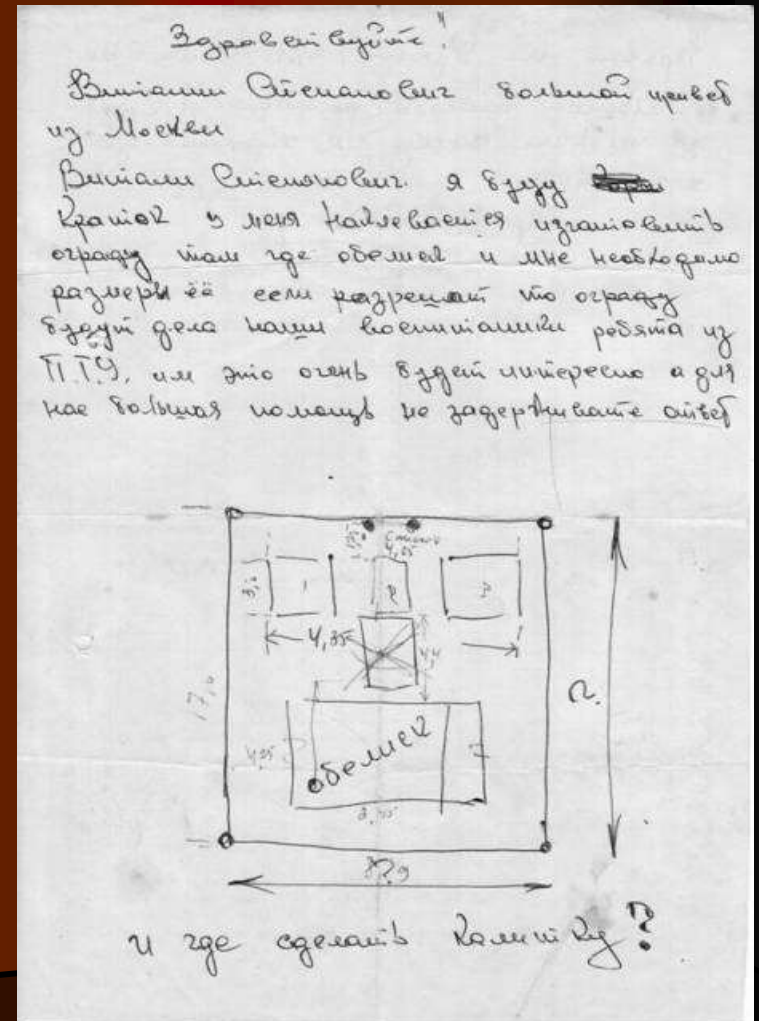 Здравствуйте!
Виталии Степанович большой привет
из Москвы
Витали Степанович. я буду
краток у меня намевается изготовить
ограду там где обелиск и мне необходимо
размеры её если разрешат то ограду
будут дела наши воспитаники ребята из
П.Т.У. им это очень будет интересно а для
нас большая помощь не задерживате ответ
4,05
3,6 1 2 3
4,35
4,4
17,6 ?
4,05 обелиск
?
и где сделать калитку?